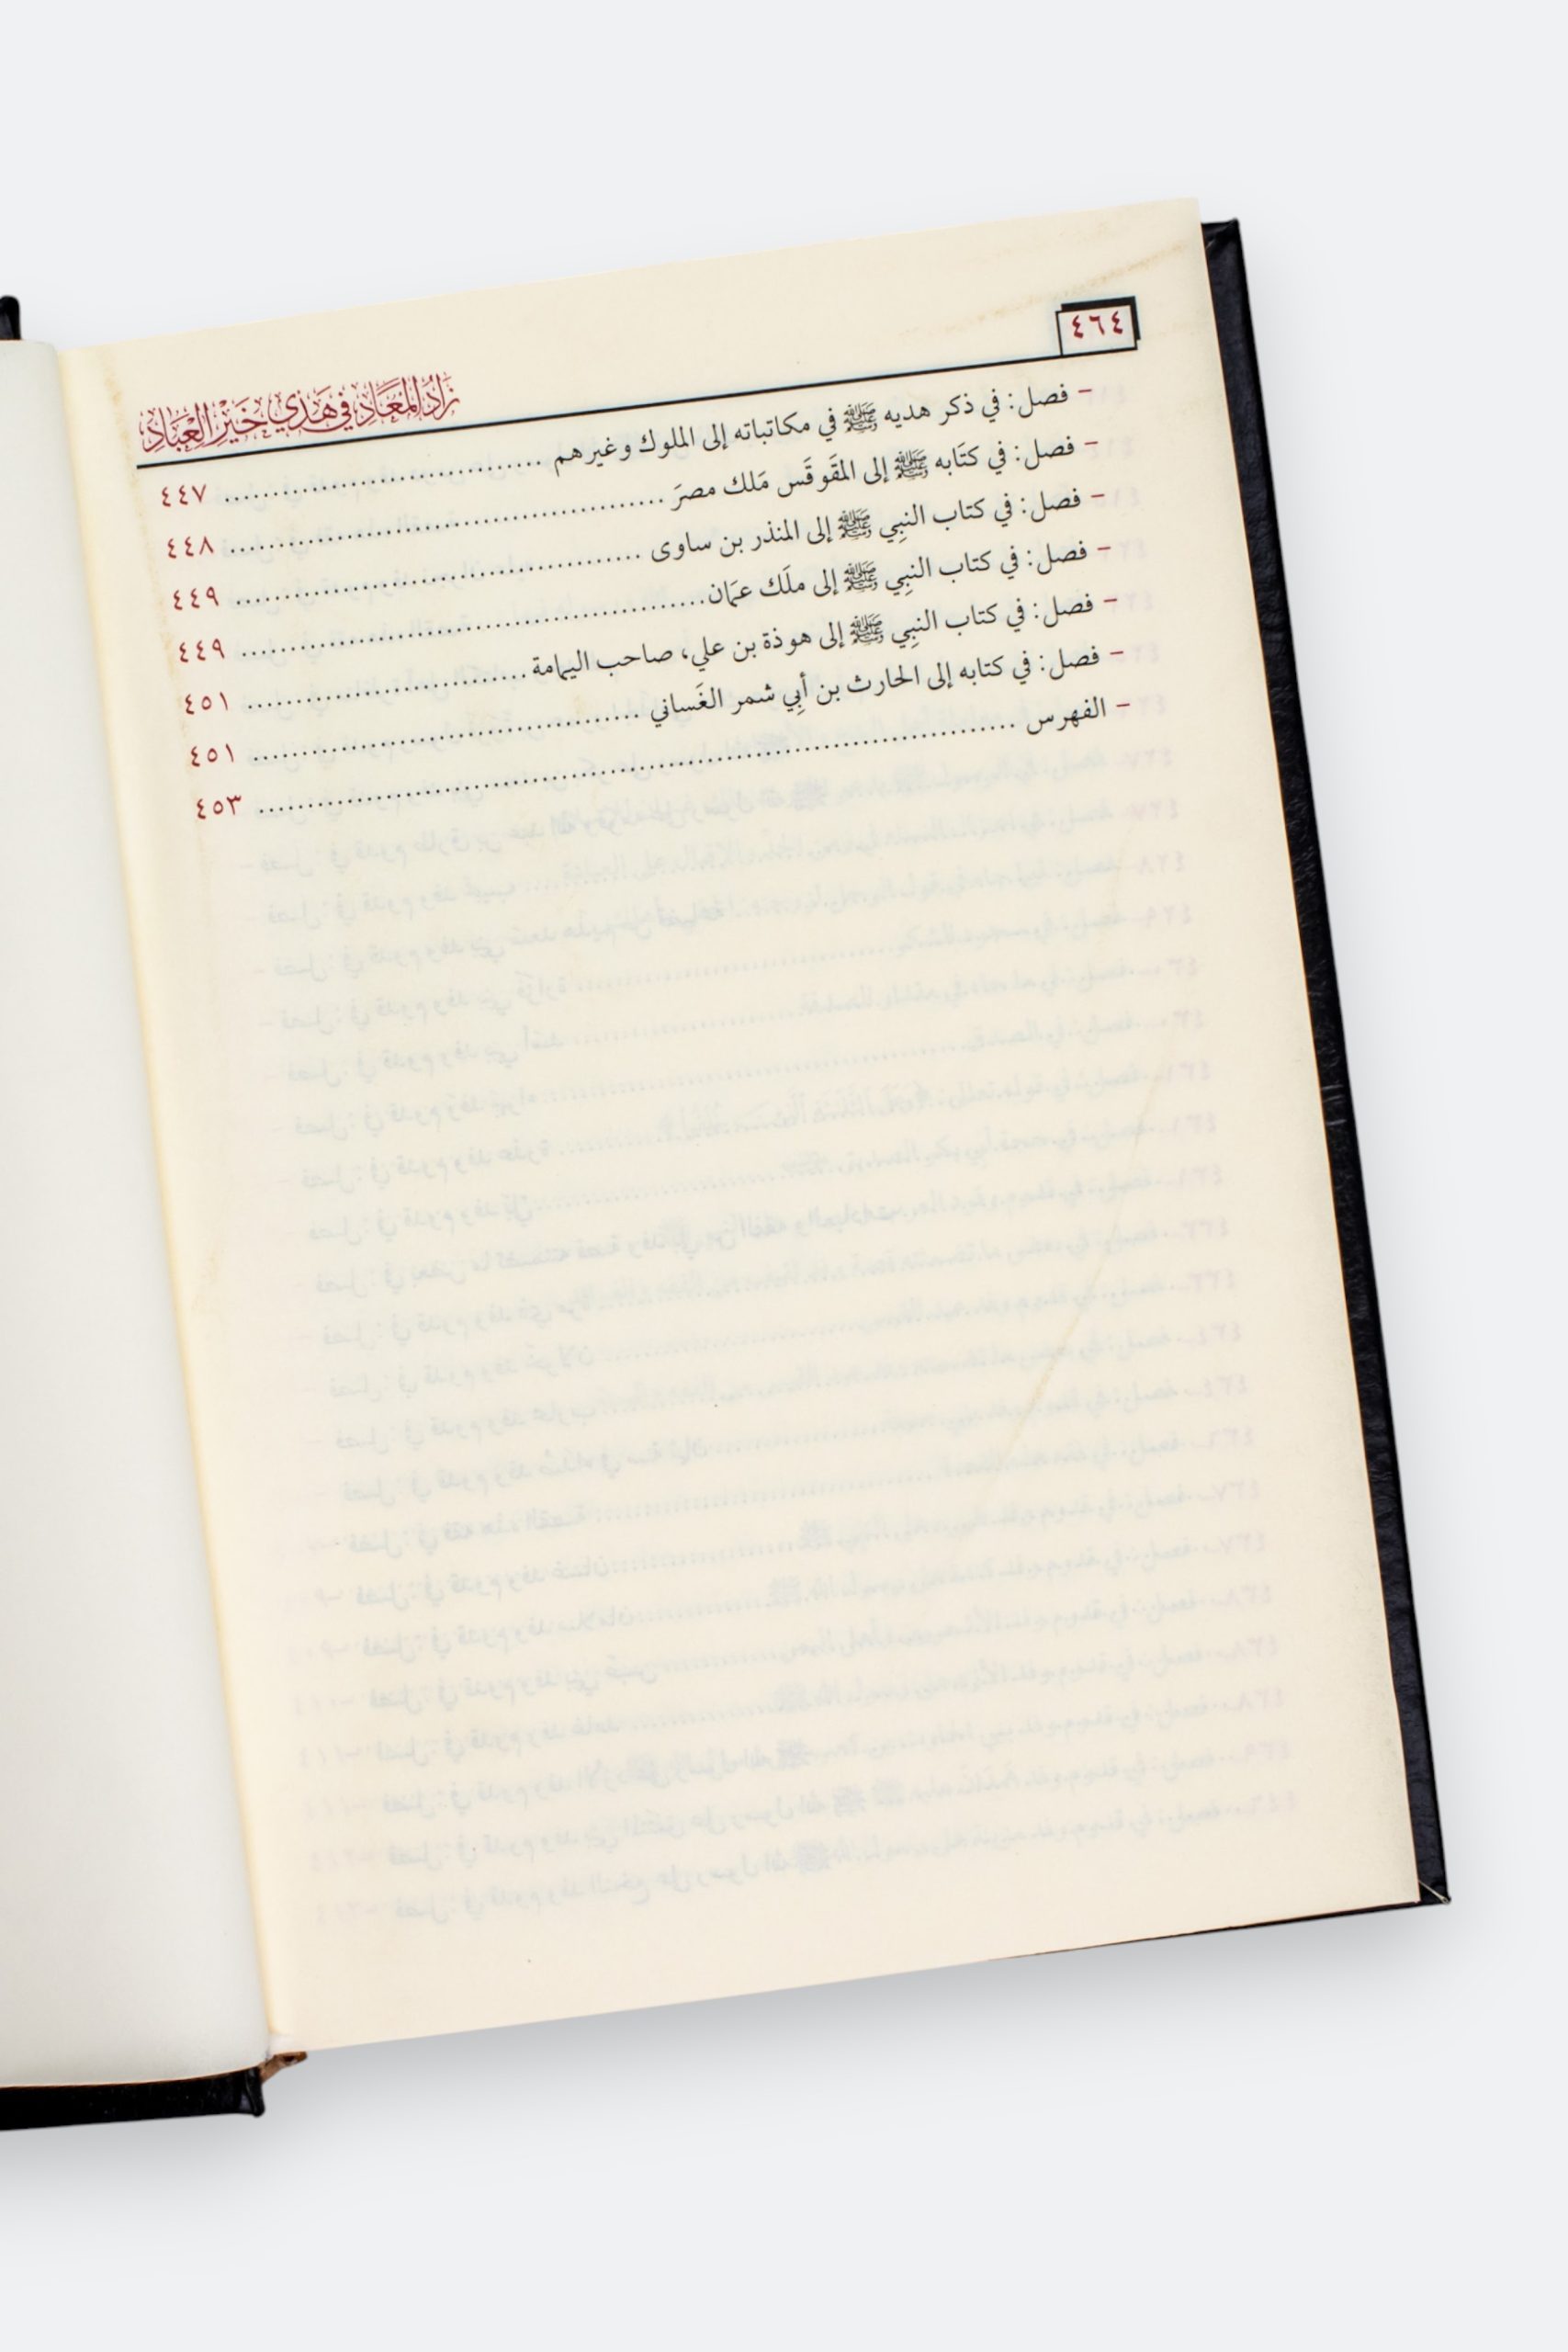 ٤٦٤
زَادُ المَعَادِ في هَدْي خَيْرِ العِبَادِ
– فصل: في ذكر هديه ﷺ في مكاتباته إلى الملوك وغيرهم ................................ ٤٤٧
– فصل: في كتَابه ﷺ إلى المقَوقَس مَلك مصرَ ................................ ٤٤٨
– فصل: في كتاب النبِي ﷺ إلى المنذر بن ساوى ................................ ٤٤٩
– فصل: في كتاب النبِي ﷺ إلى ملَك عمَان ................................ ٤٤٩
– فصل: في كتاب النبِي ﷺ إلى هوذة بن علي، صاحب اليمامة ................................ ٤٥١
– فصل: في كتابه إلى الحارث بن أبِي شمر الغَساني ................................ ٤٥١
– الفهرس ................................ ٤٥٣